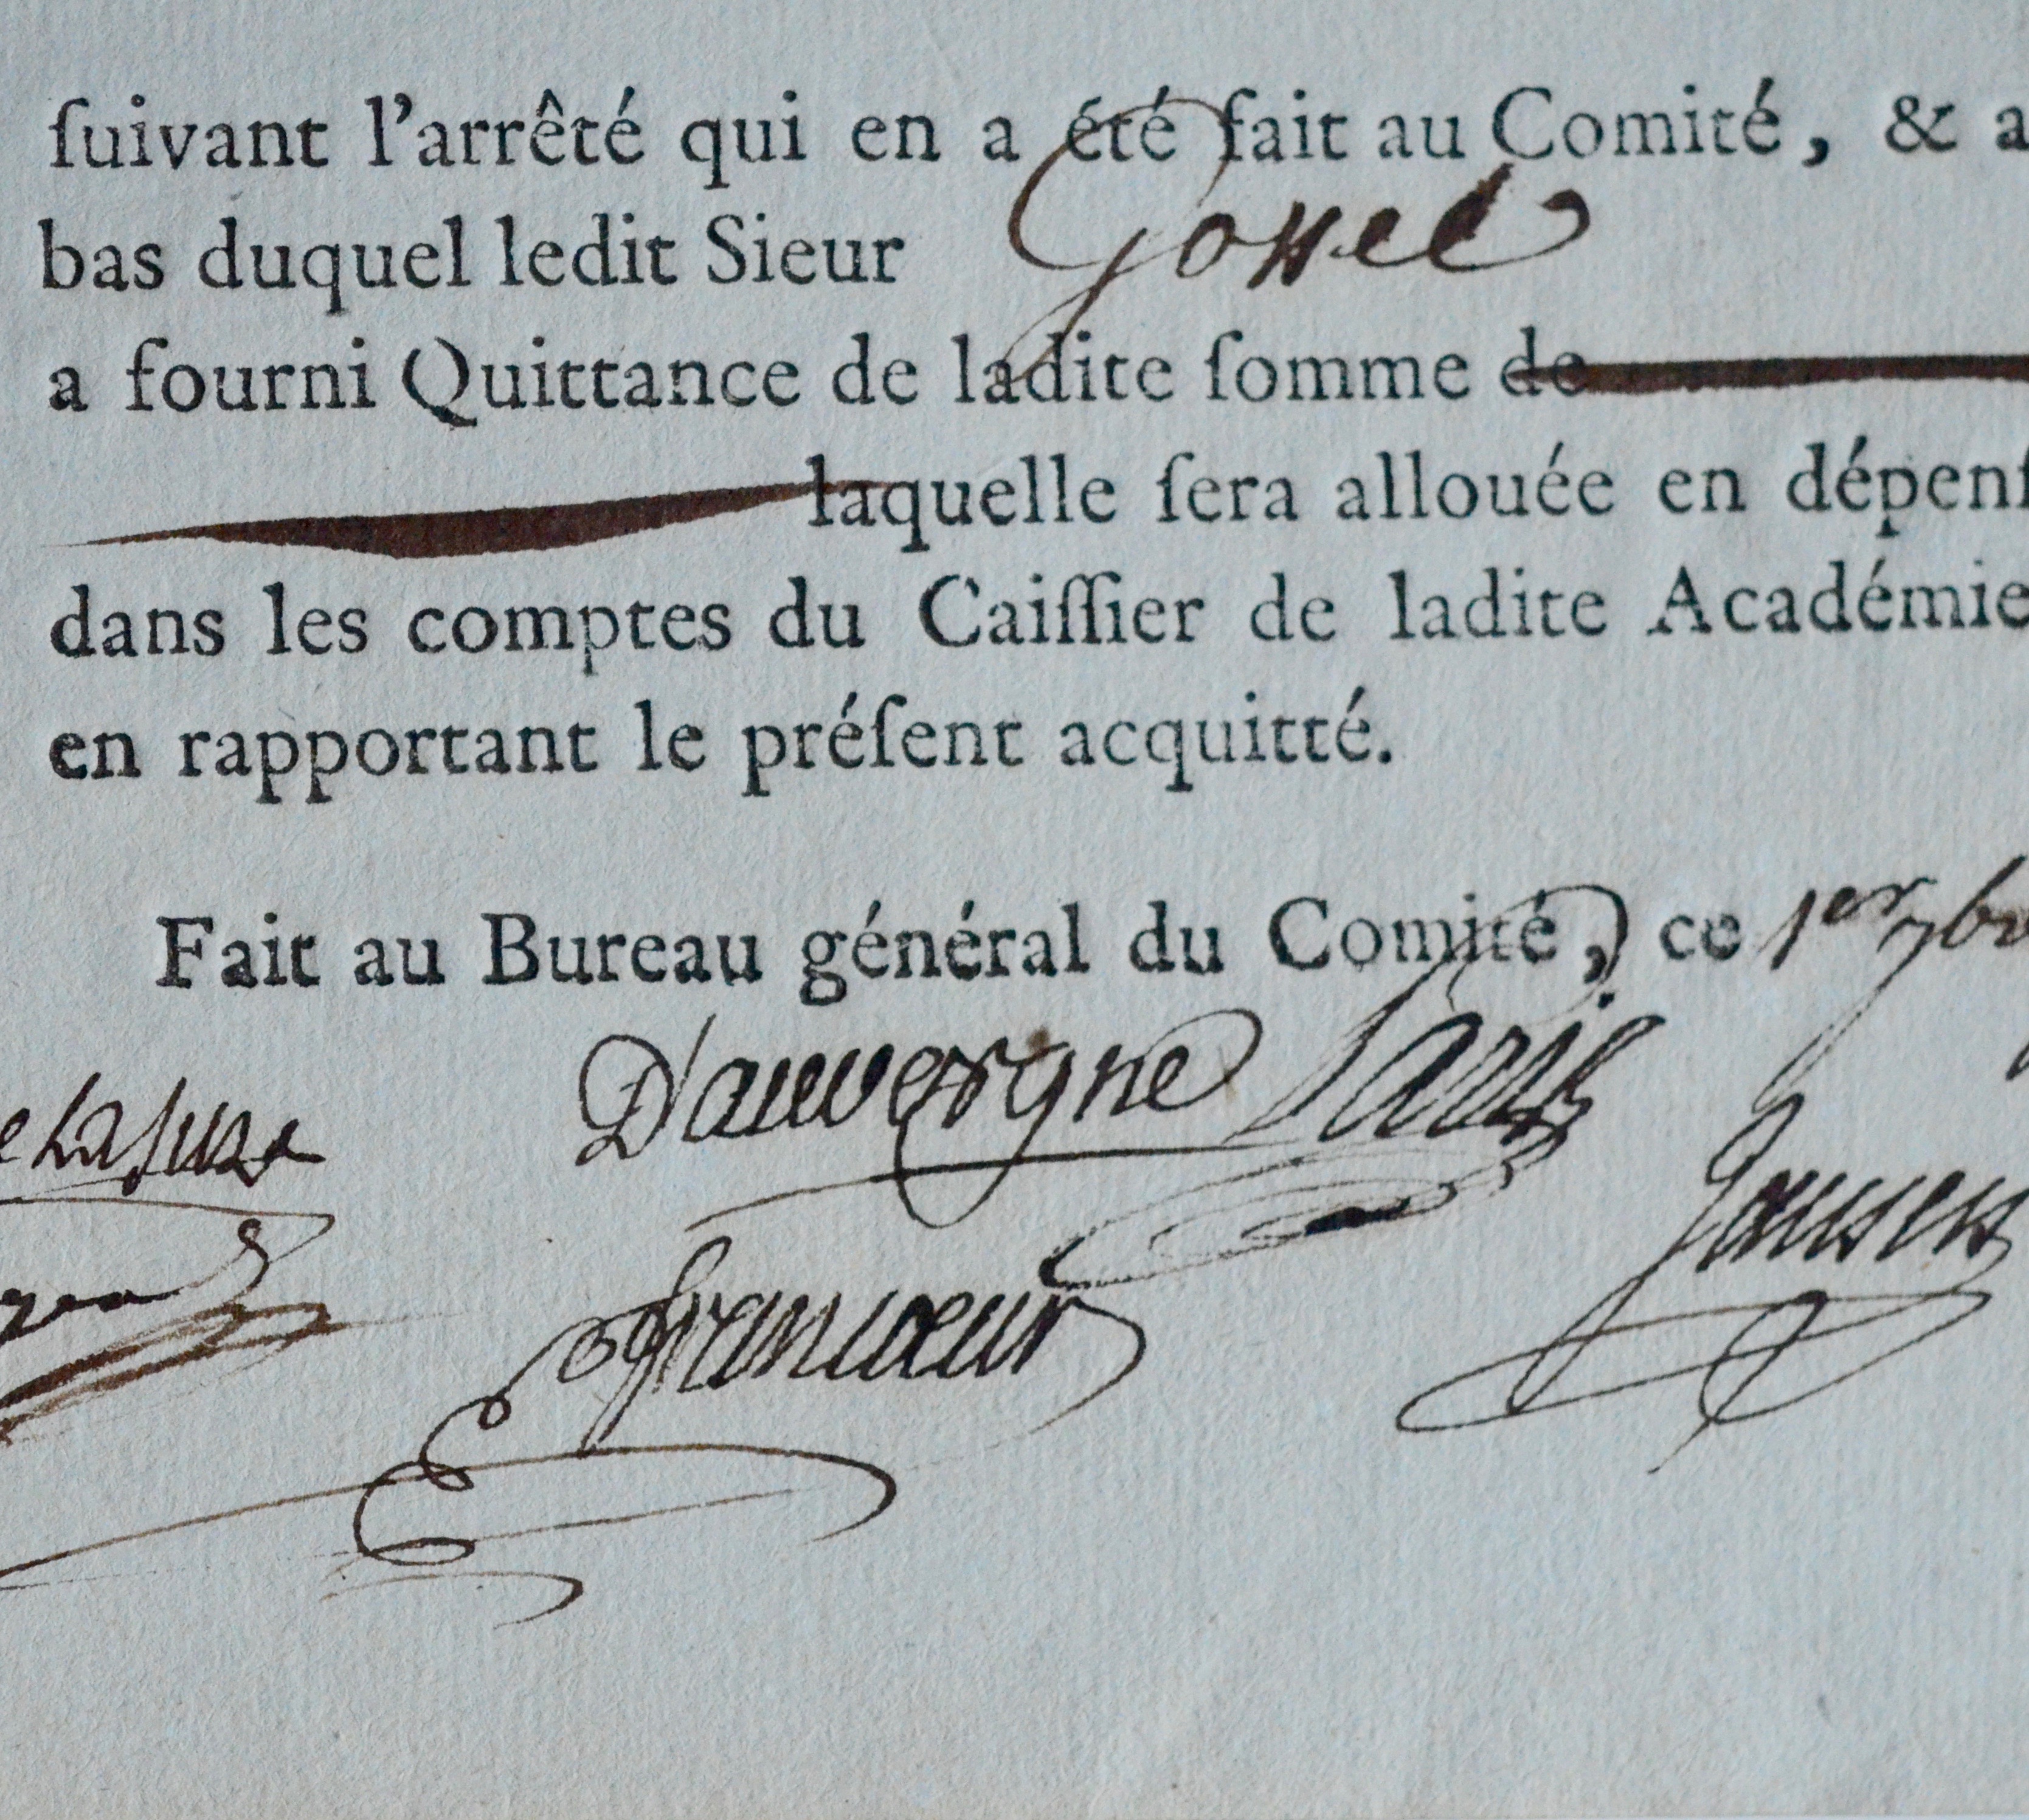 ſuivant l'arrêté qui en a été fait au Comité, & a
bas duquel ledit Sieur Gossec
a fourni Quittance de ladite ſomme de
laquelle ſera allouée en dépenſ
dans les comptes du Caiſſier de ladite Académie
en rapportant le préſent acquitté.
Fait au Bureau général du Comité, ce 1er 7br
D'auvergne Paris
Jansen
francœur